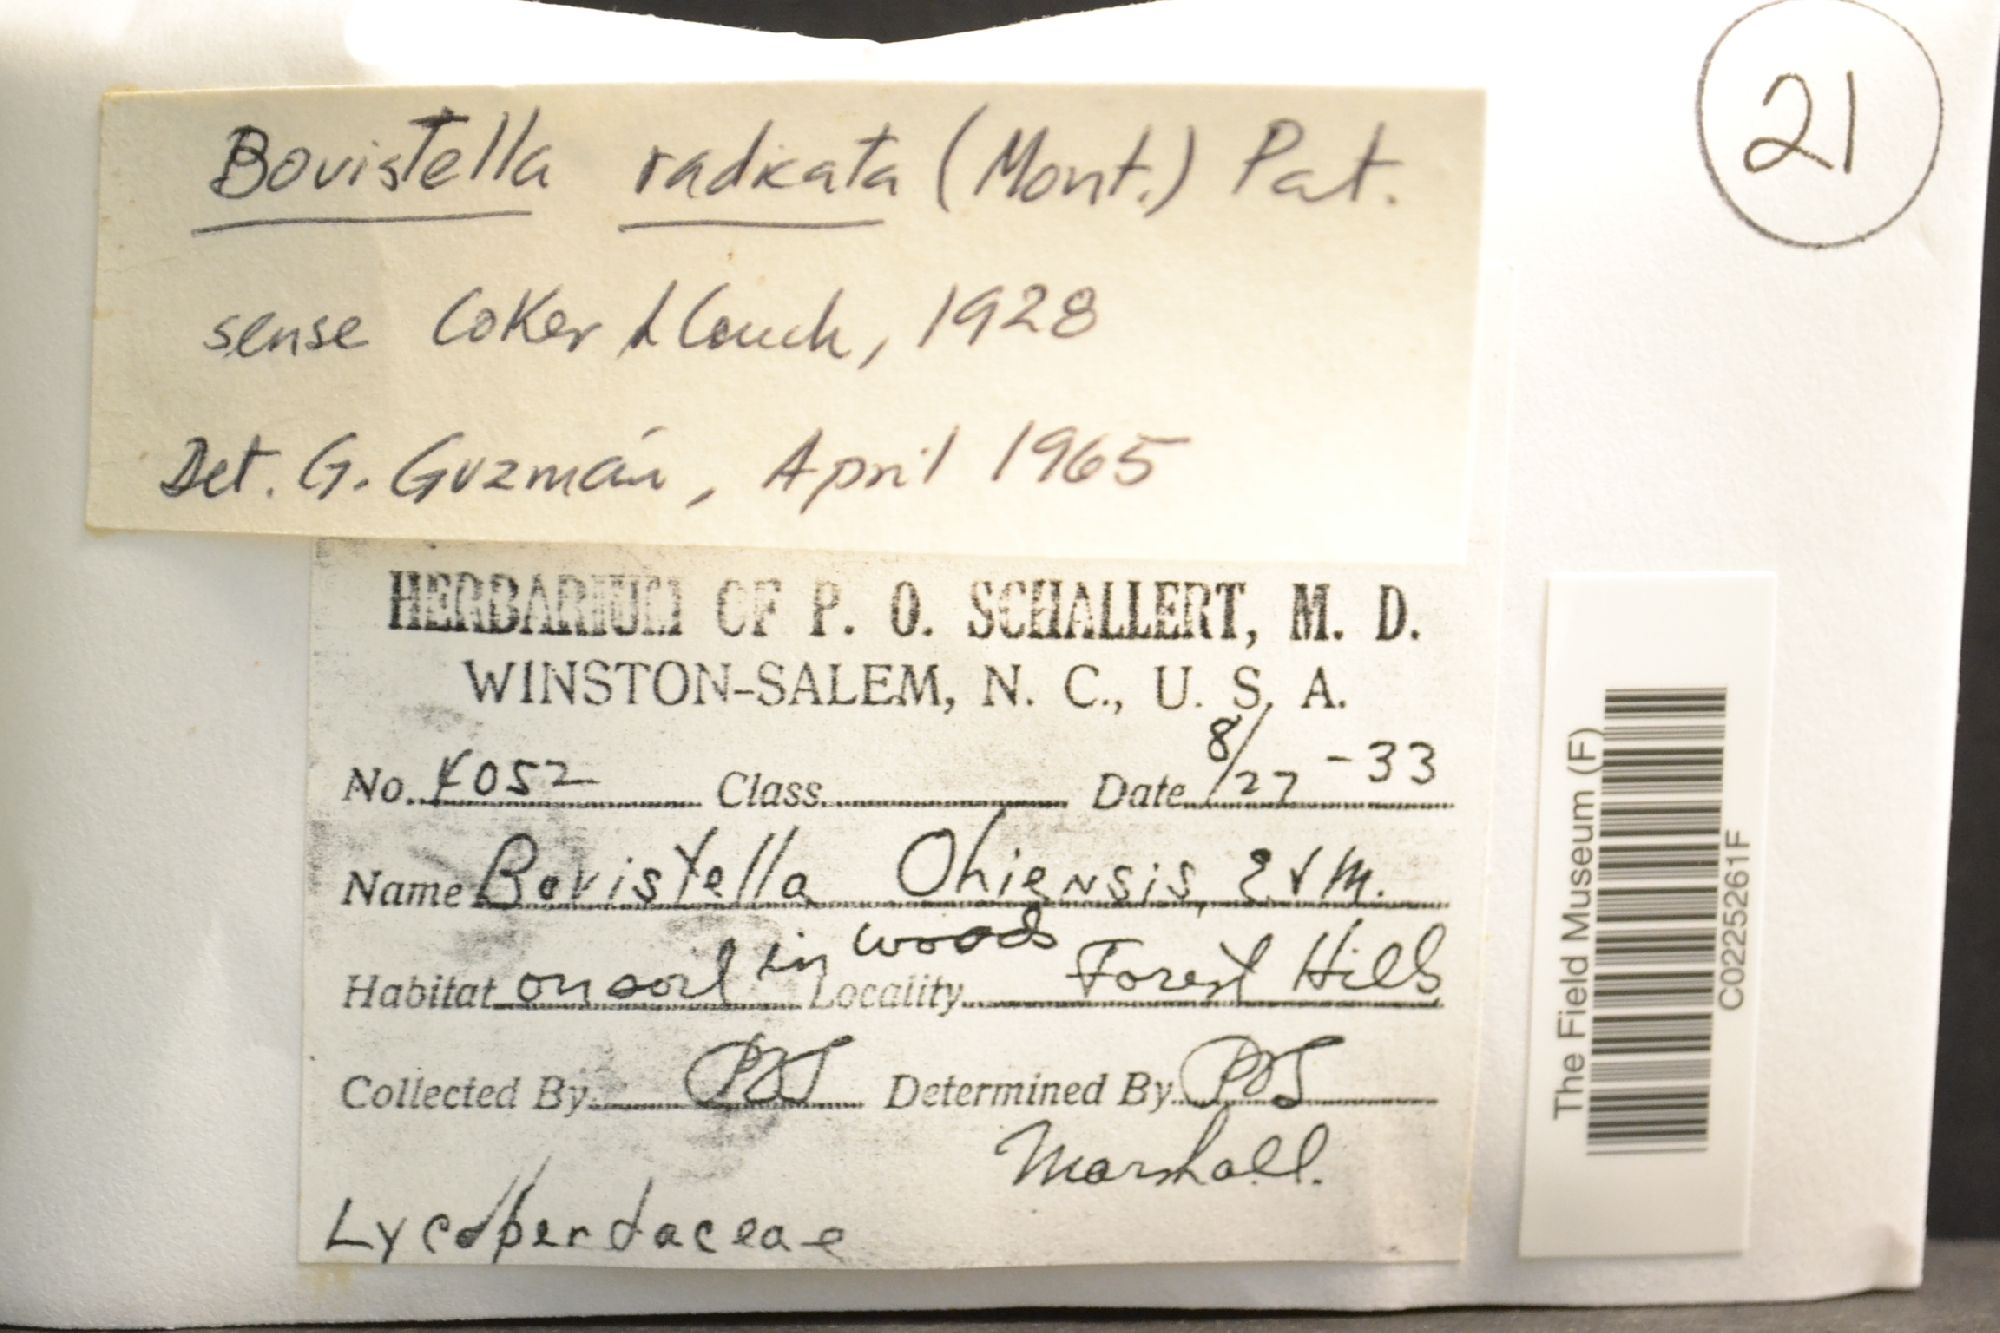 21
Bovistella radicata (Mont.) Pat.
sense Coker & Couch, 1928
Det. G. Guzmán, April 1965
HERBARIUM OF P. O. SCHALLERT, M. D.
WINSTON-SALEM, N. C., U. S. A.
No. 4052 Class Date 8/27-33
Name Bovistella Ohiensis, E & M.
Habitat on soil in woods Locality Forest Hills
Collected By POS Determined By POS
Marshall.
Lycoperdaceae
The Field Museum (F)
C0225261F